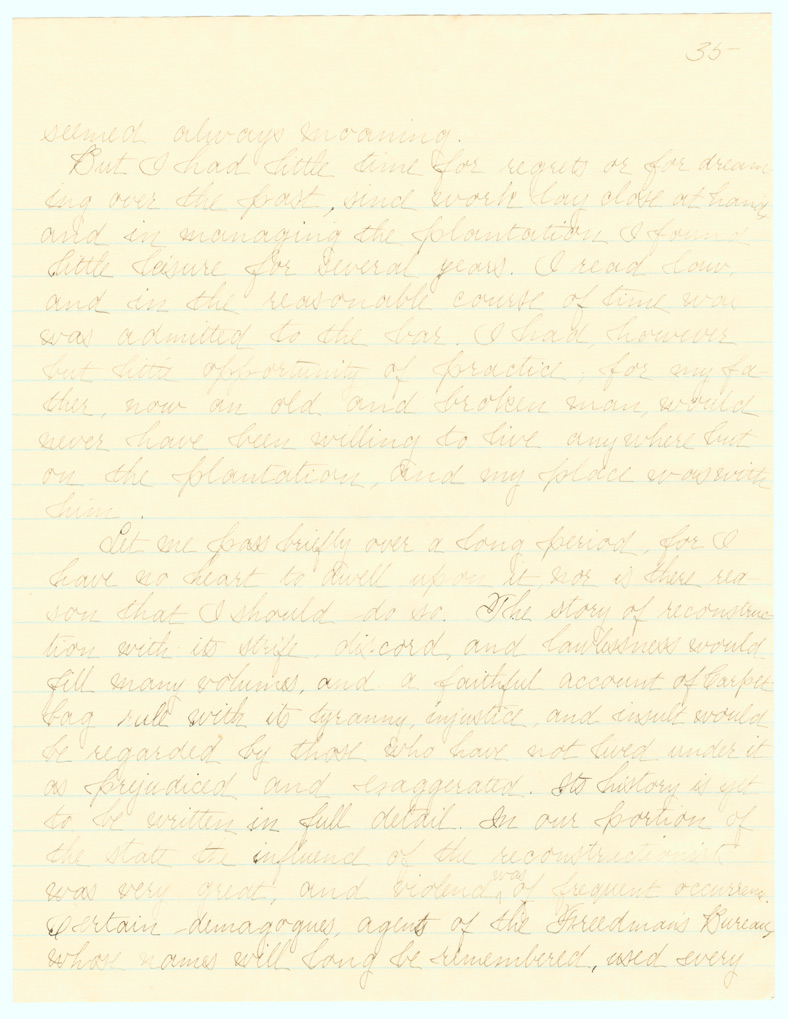 35-
seemed always moaning.
But I had little time for regrets or for dream-
ing over the past, since work lay close at hand
and in managing the plantation I found
little leisure for several years. I read law,
and in the reasonable course of time was
was admitted to the bar. I had, however
but little opportunity of practice, for my fa-
ther, now an old and broken man, would
never have been willing to live anywhere but
on the plantation, and my place was with
him.
Let me pass briefly over a long period, for I
have no heart to dwell upon it, nor is there rea
son that I should do so. The story of reconstruc
tion with its strife, discord, and lawlessness would
fill many volumes, and a faithful account of Carpet
bag rule with its tyranny, injustice, and insult would
be regarded by those who have not lived under it
as prejudiced and exaggerated. Its history is yet
to be written in full detail. In our portion of
the state the influence of the reconstructionist
was very great, and violence was of frequent occurrence.
Certain demagogues, agents of the Freedman's Bureau,
whose names will long be remembered, used every